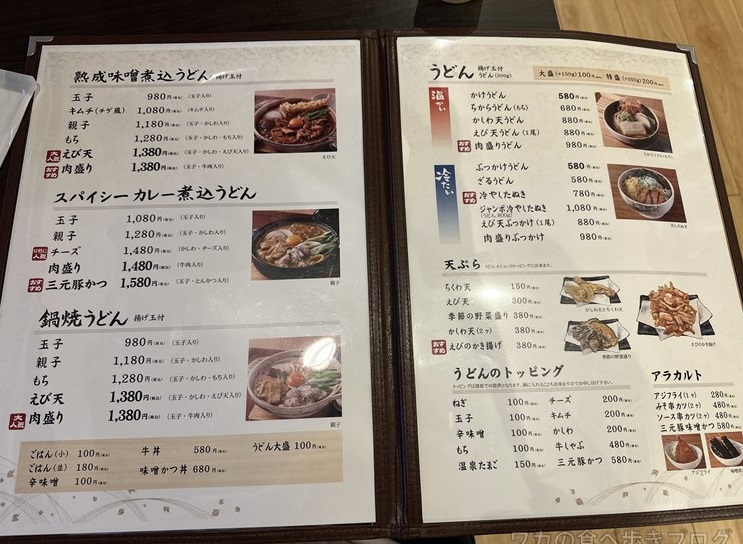 熟成味噌煮込うどん 揚げ玉付
玉子 980円(税込) (玉子入り)
キムチ(チゲ風) 1,080円(税込) (キムチ入り)
親子 1,180円(税込) (玉子・かしわ入り)
もち 1,280円(税込) (玉子・かしわ・もち入り)
大人気 えび天 1,380円(税込) (玉子・かしわ・えび天入り)
おすすめ 肉盛り 1,380円(税込) (玉子・牛肉入り)
えび天
スパイシーカレー煮込うどん
玉子 1,080円(税込) (玉子入り)
親子 1,280円(税込) (玉子・かしわ入り)
女性に人気 チーズ 1,480円(税込) (かしわ・チーズ入り)
肉盛り 1,480円(税込) (牛肉入り)
おすすめ 三元豚かつ 1,580円(税込) (玉子・とんかつ入り)
親子
鍋焼うどん 揚げ玉付
玉子 980円(税込) (玉子入り)
親子 1,180円(税込) (玉子・かしわ入り)
もち 1,280円(税込) (玉子・かしわ・もち入り)
えび天 1,380円(税込) (玉子・かしわ・えび天入り)
大人気 肉盛り 1,380円(税込) (玉子・牛肉入り)
親子
ごはん(小) 100円(税込) 牛丼 580円(税込) うどん大盛 100円(税込)
ごはん(並) 180円(税込) 味噌かつ丼 680円(税込)
辛味噌 100円(税込)
うどん 揚げ玉付 うどん(300g) 大盛(+150g)100円(税込) 特盛(+300g)200円(税込)
温かい
かけうどん 580円(税込)
ちからうどん(もち) 680円(税込)
かしわ天うどん 880円(税込)
えび天うどん(1尾) 880円(税込)
おすすめ 肉盛りうどん 980円(税込)
冷たい
ぶっかけうどん 580円(税込)
ざるうどん 580円(税込)
おすすめ 冷やしたぬき 780円(税込)
ジャンボ冷やしたぬき 1,080円(税込)
(うどん 800g)
えび天ぶっかけ(1尾) 880円(税込)
肉盛りぶっかけ 980円(税込)
冷したぬき
天ぷら
ちくわ天 150円(税込)
えび天 300円(税込)
季節の野菜盛り 380円(税込)
かしわ天(2ヶ) 380円(税込)
おすすめ えびのかき揚げ 380円(税込)
かしわ天とちくわ天
季節の野菜盛り
えびのかき揚げ
うどんのトッピング
ねぎ 100円(税込) チーズ 200円(税込)
玉子 100円(税込) キムチ 200円(税込)
辛味噌 100円(税込) かしわ 200円(税込)
もち 100円(税込) 牛しゃぶ 480円(税込)
温泉たまご 150円(税込) 三元豚かつ 580円(税込)
アラカルト
アジフライ(1ヶ) 280円(税込)
みそ串カツ(2ヶ) 480円(税込)
ソース串カツ(2ヶ) 480円(税込)
三元豚味噌かつ 580円(税込)
アジフライ
ワカの食べ歩きブログ